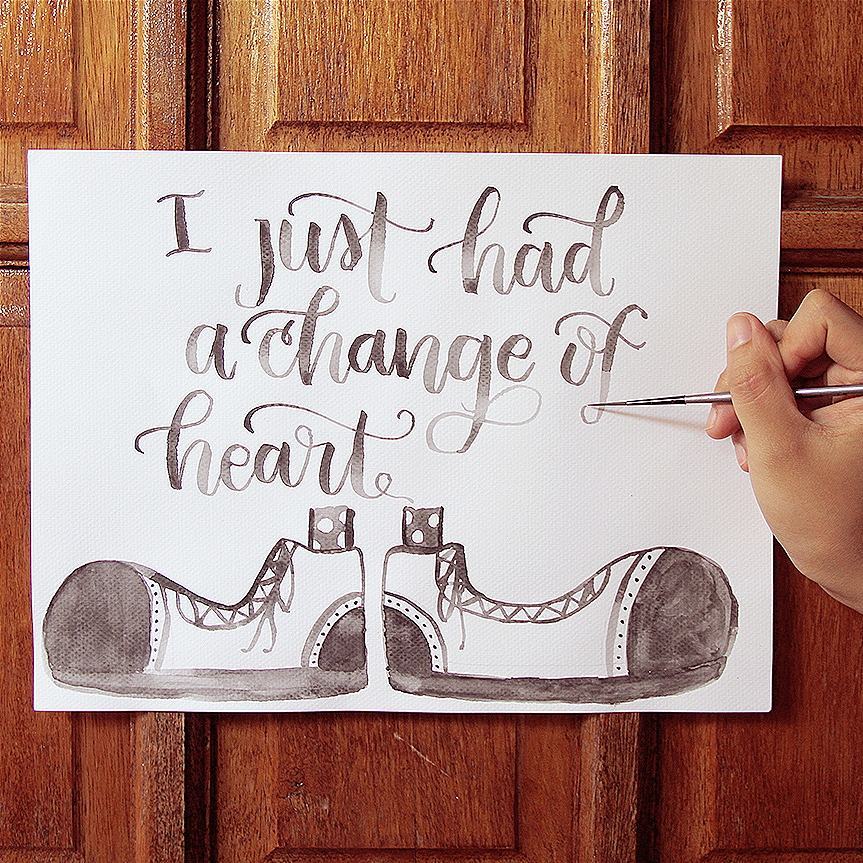 I just had
a change of
heart